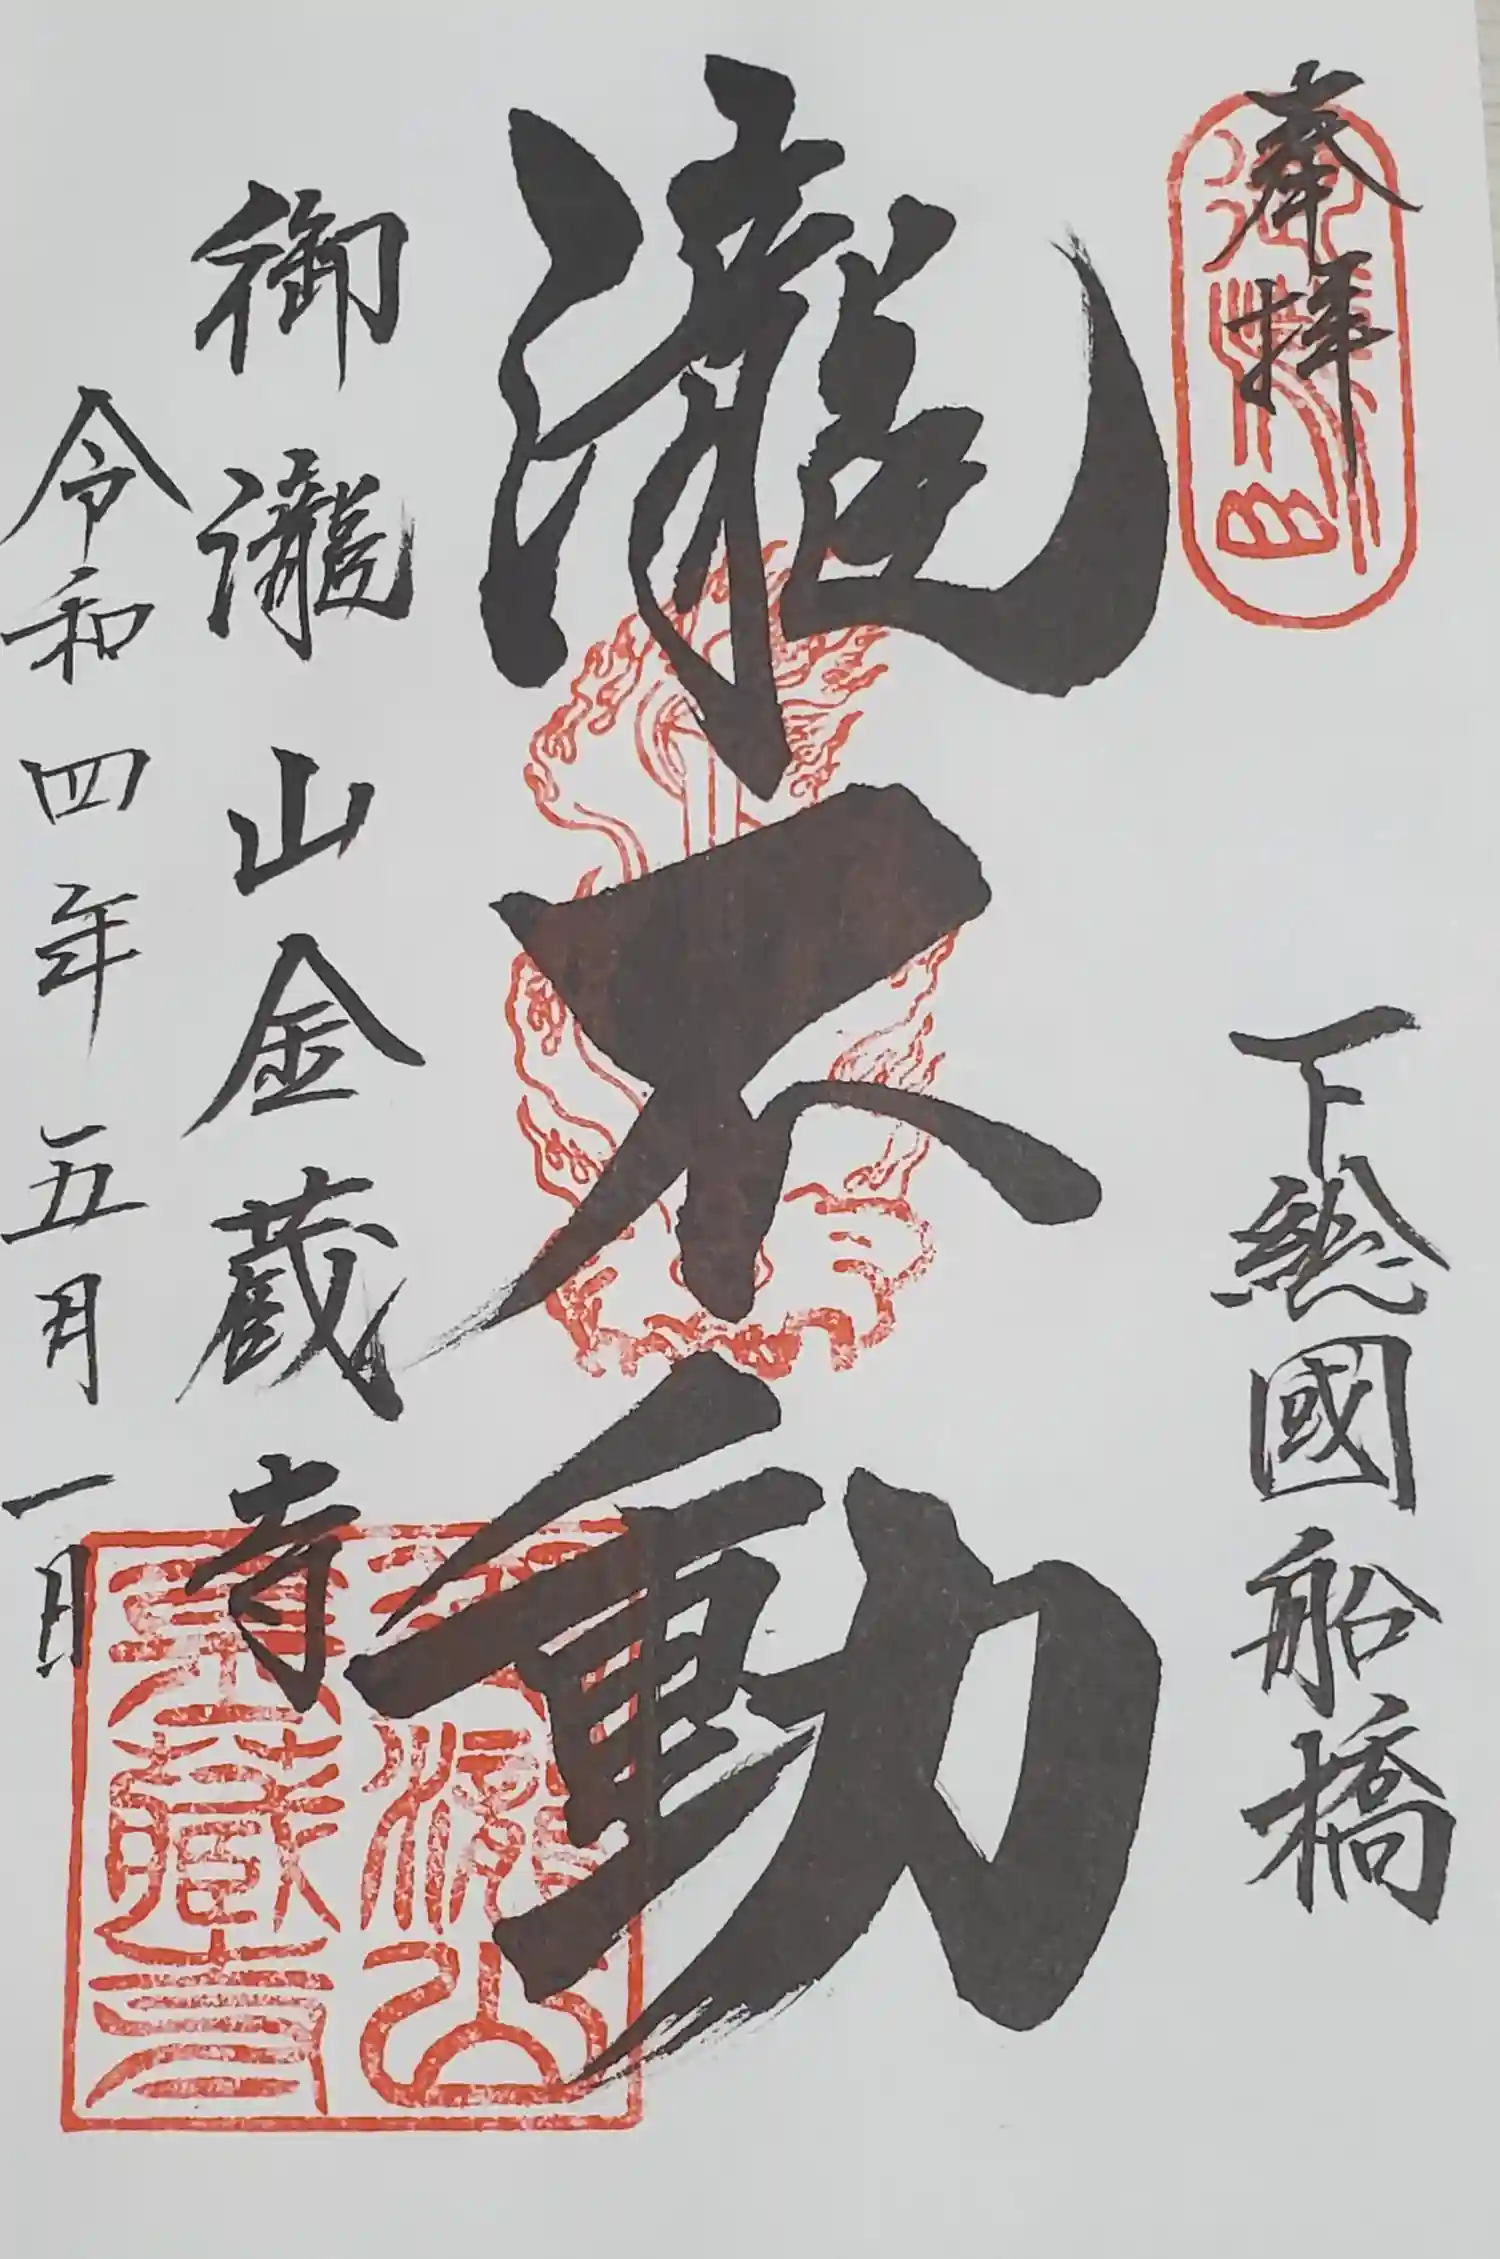 奉拝
下總國船橋
瀧不動
御瀧山金蔵寺
令和四年五月一日
御瀧山
金藏寺